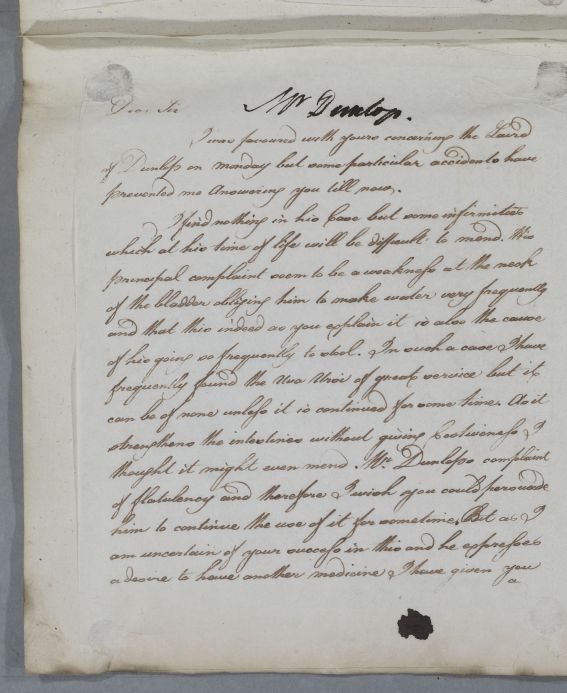 Dear Sir Mr Dunlop.
I was favoured with yours concerning the Laird
of Dunlop on monday but some particular accidents have
prevented me Answering you till now.
I find nothing in his Case but some infirmities
which at his time of life will be difficult to mend. His
principal complaint seem to be a weakness at the neck
of the bladder obliging him to make water very frequently
and that this indeed as you explain it is also the cause
of his going so frequently to stool. In such a case I have
frequently found the Uva Ursi of great service but it
can be of none unless it is continued for some time. As it
strengthens the intestines without giving Costiveness I
thought it might even mend Mr. Dunlops complaint
of flatulency and therefore I wish you could persuade
him to continue the use of it for sometime. But as I
am uncertain of your success in this and he expresses
a desire to have another medicine I have given you
a